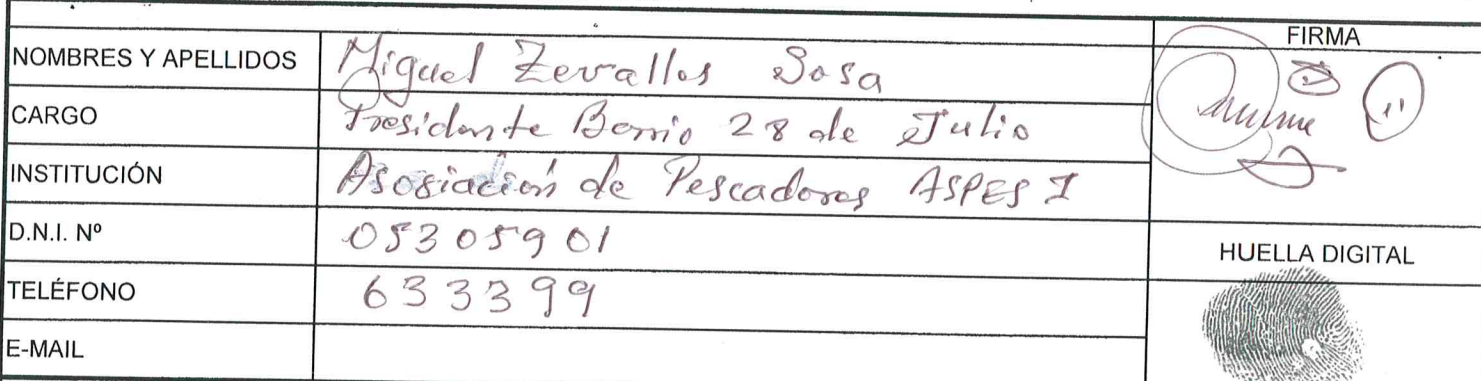 FIRMA
NOMBRES Y APELLIDOS Miguel Zevallos Sosa
CARGO Presidente Barrio 28 de Julio
INSTITUCIÓN Asosiación de Pescadores ASPES I
D.N.I. Nº 05305901
HUELLA DIGITAL
TELÉFONO 633399
E-MAIL